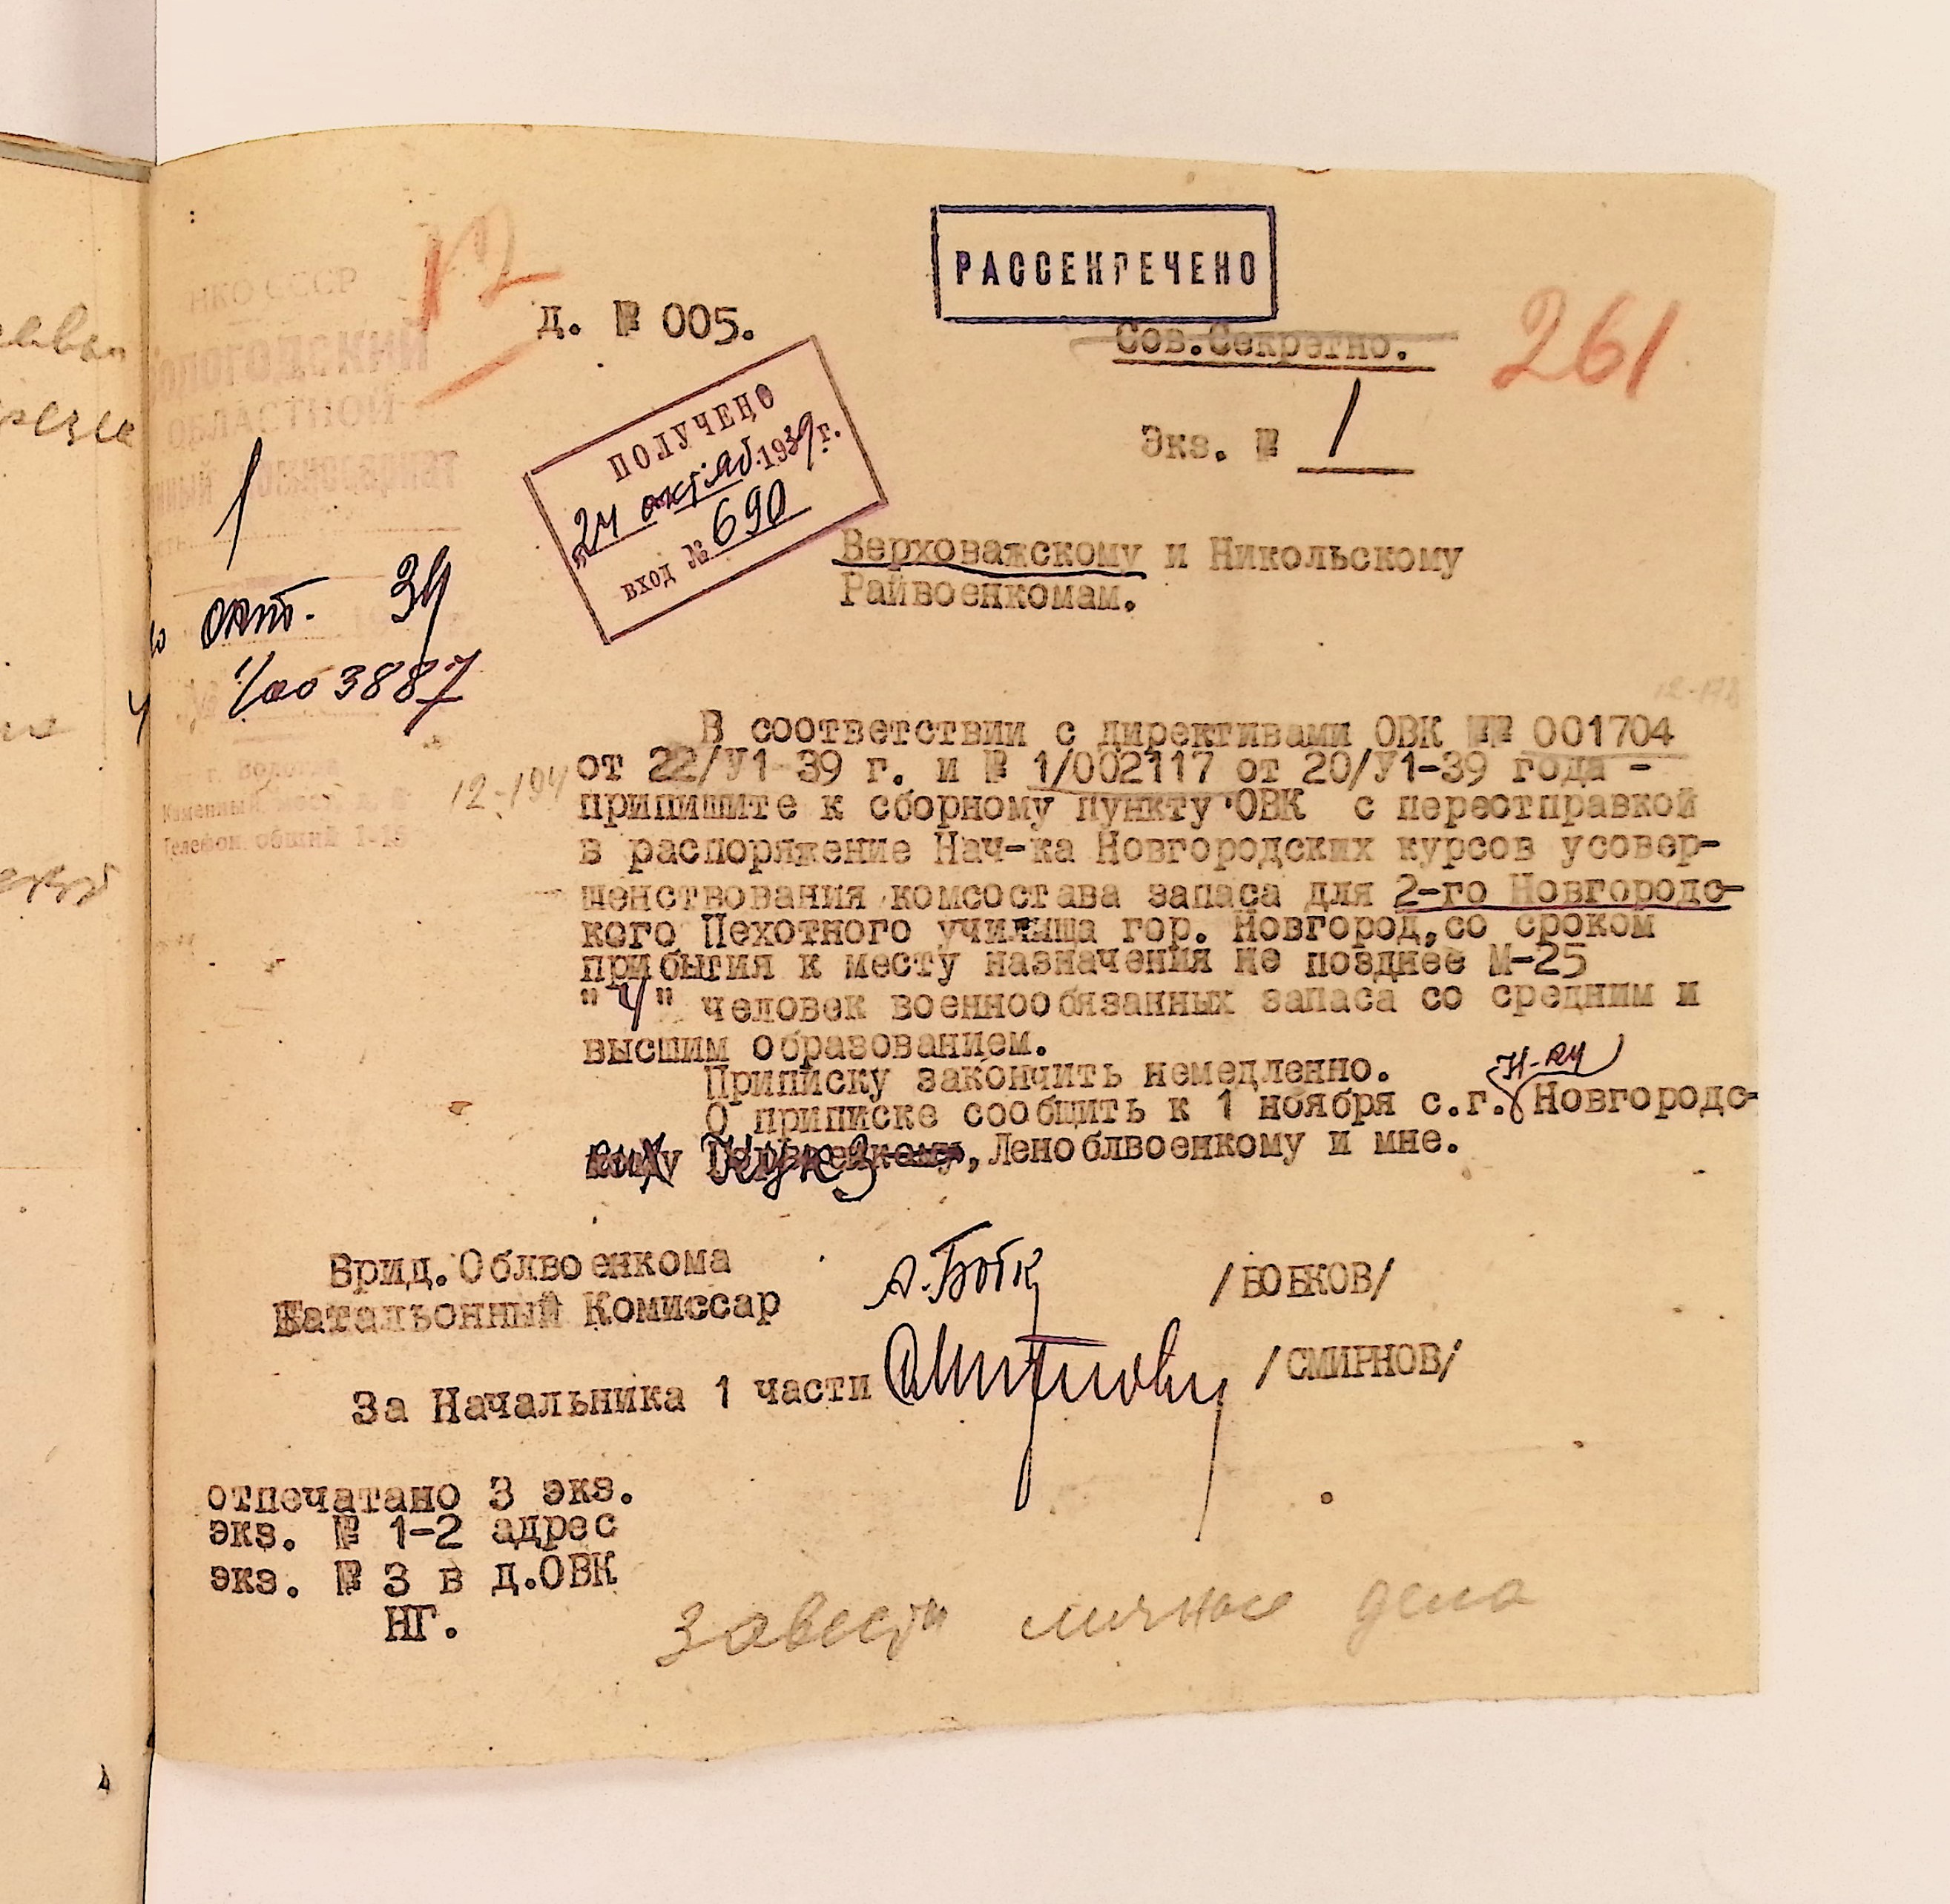 РАССЕКРЕЧЕНО
12
261
НКО СССР
ВОЛОГОДСКИЙ
ОБЛАСТНОЙ
1
окт. 39
3887
г. Вологда
Телефон общий 1-18
д. № 005.
Сов.Секретно.
Экз. № 1
ПОЛУЧЕНО
24 октяб. 1939 г.
вход № 690
Верховажскому и Никольскому
Райвоенкомам.
12-194
В соответствии с директивами ОВК №№ 001704
от 22/У1-39 г. и № 1/002117 от 20/У1-39 года -
припишите к сборному пункту ОВК с переотправкой
в распоряжение Нач-ка Новгородских курсов усовер-
шенствования комсостава запаса для 2-го Новгородс-
кого Пехотного училыща гор. Новгород,со сроком
прибытия к месту назначения не позднее М-25
"4" человек военнообязанных запаса со средним и
высшим образованием.
Приписку закончить немедленно.
О приписке сообщить к 1 ноября с.г. Н-ку Новгородс-
ких КУКЗ, Леноблвоенкому и мне.
Врид. Облвоенкома
Батальонный Комиссар
/БОБКОВ/
За Начальника 1 части
/СМИРНОВ/
отпечатано 3 экз.
экз. № 1-2 адрес
экз. № 3 в д.ОВК
НГ.
Завести личные дела